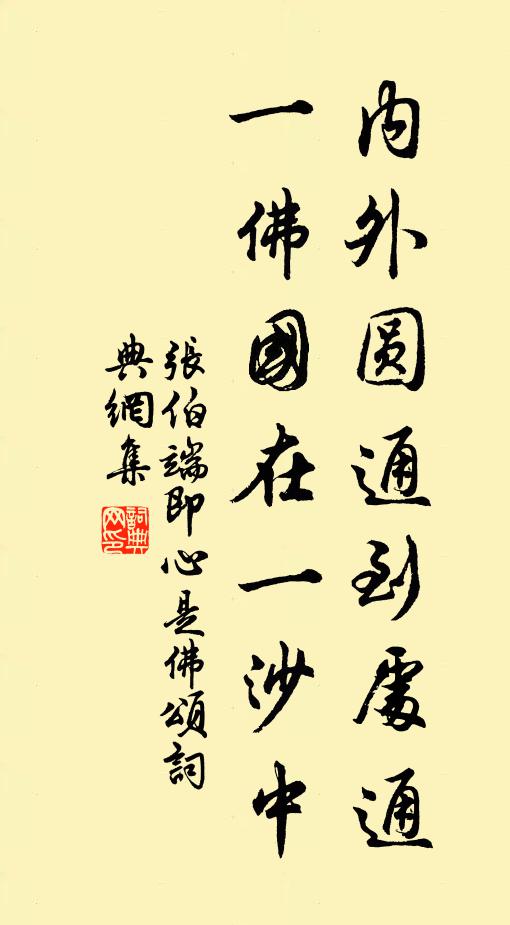 内外圓通到處通
一佛國在一沙中
張伯端即心是佛頌詞
典網集
詞典
网印